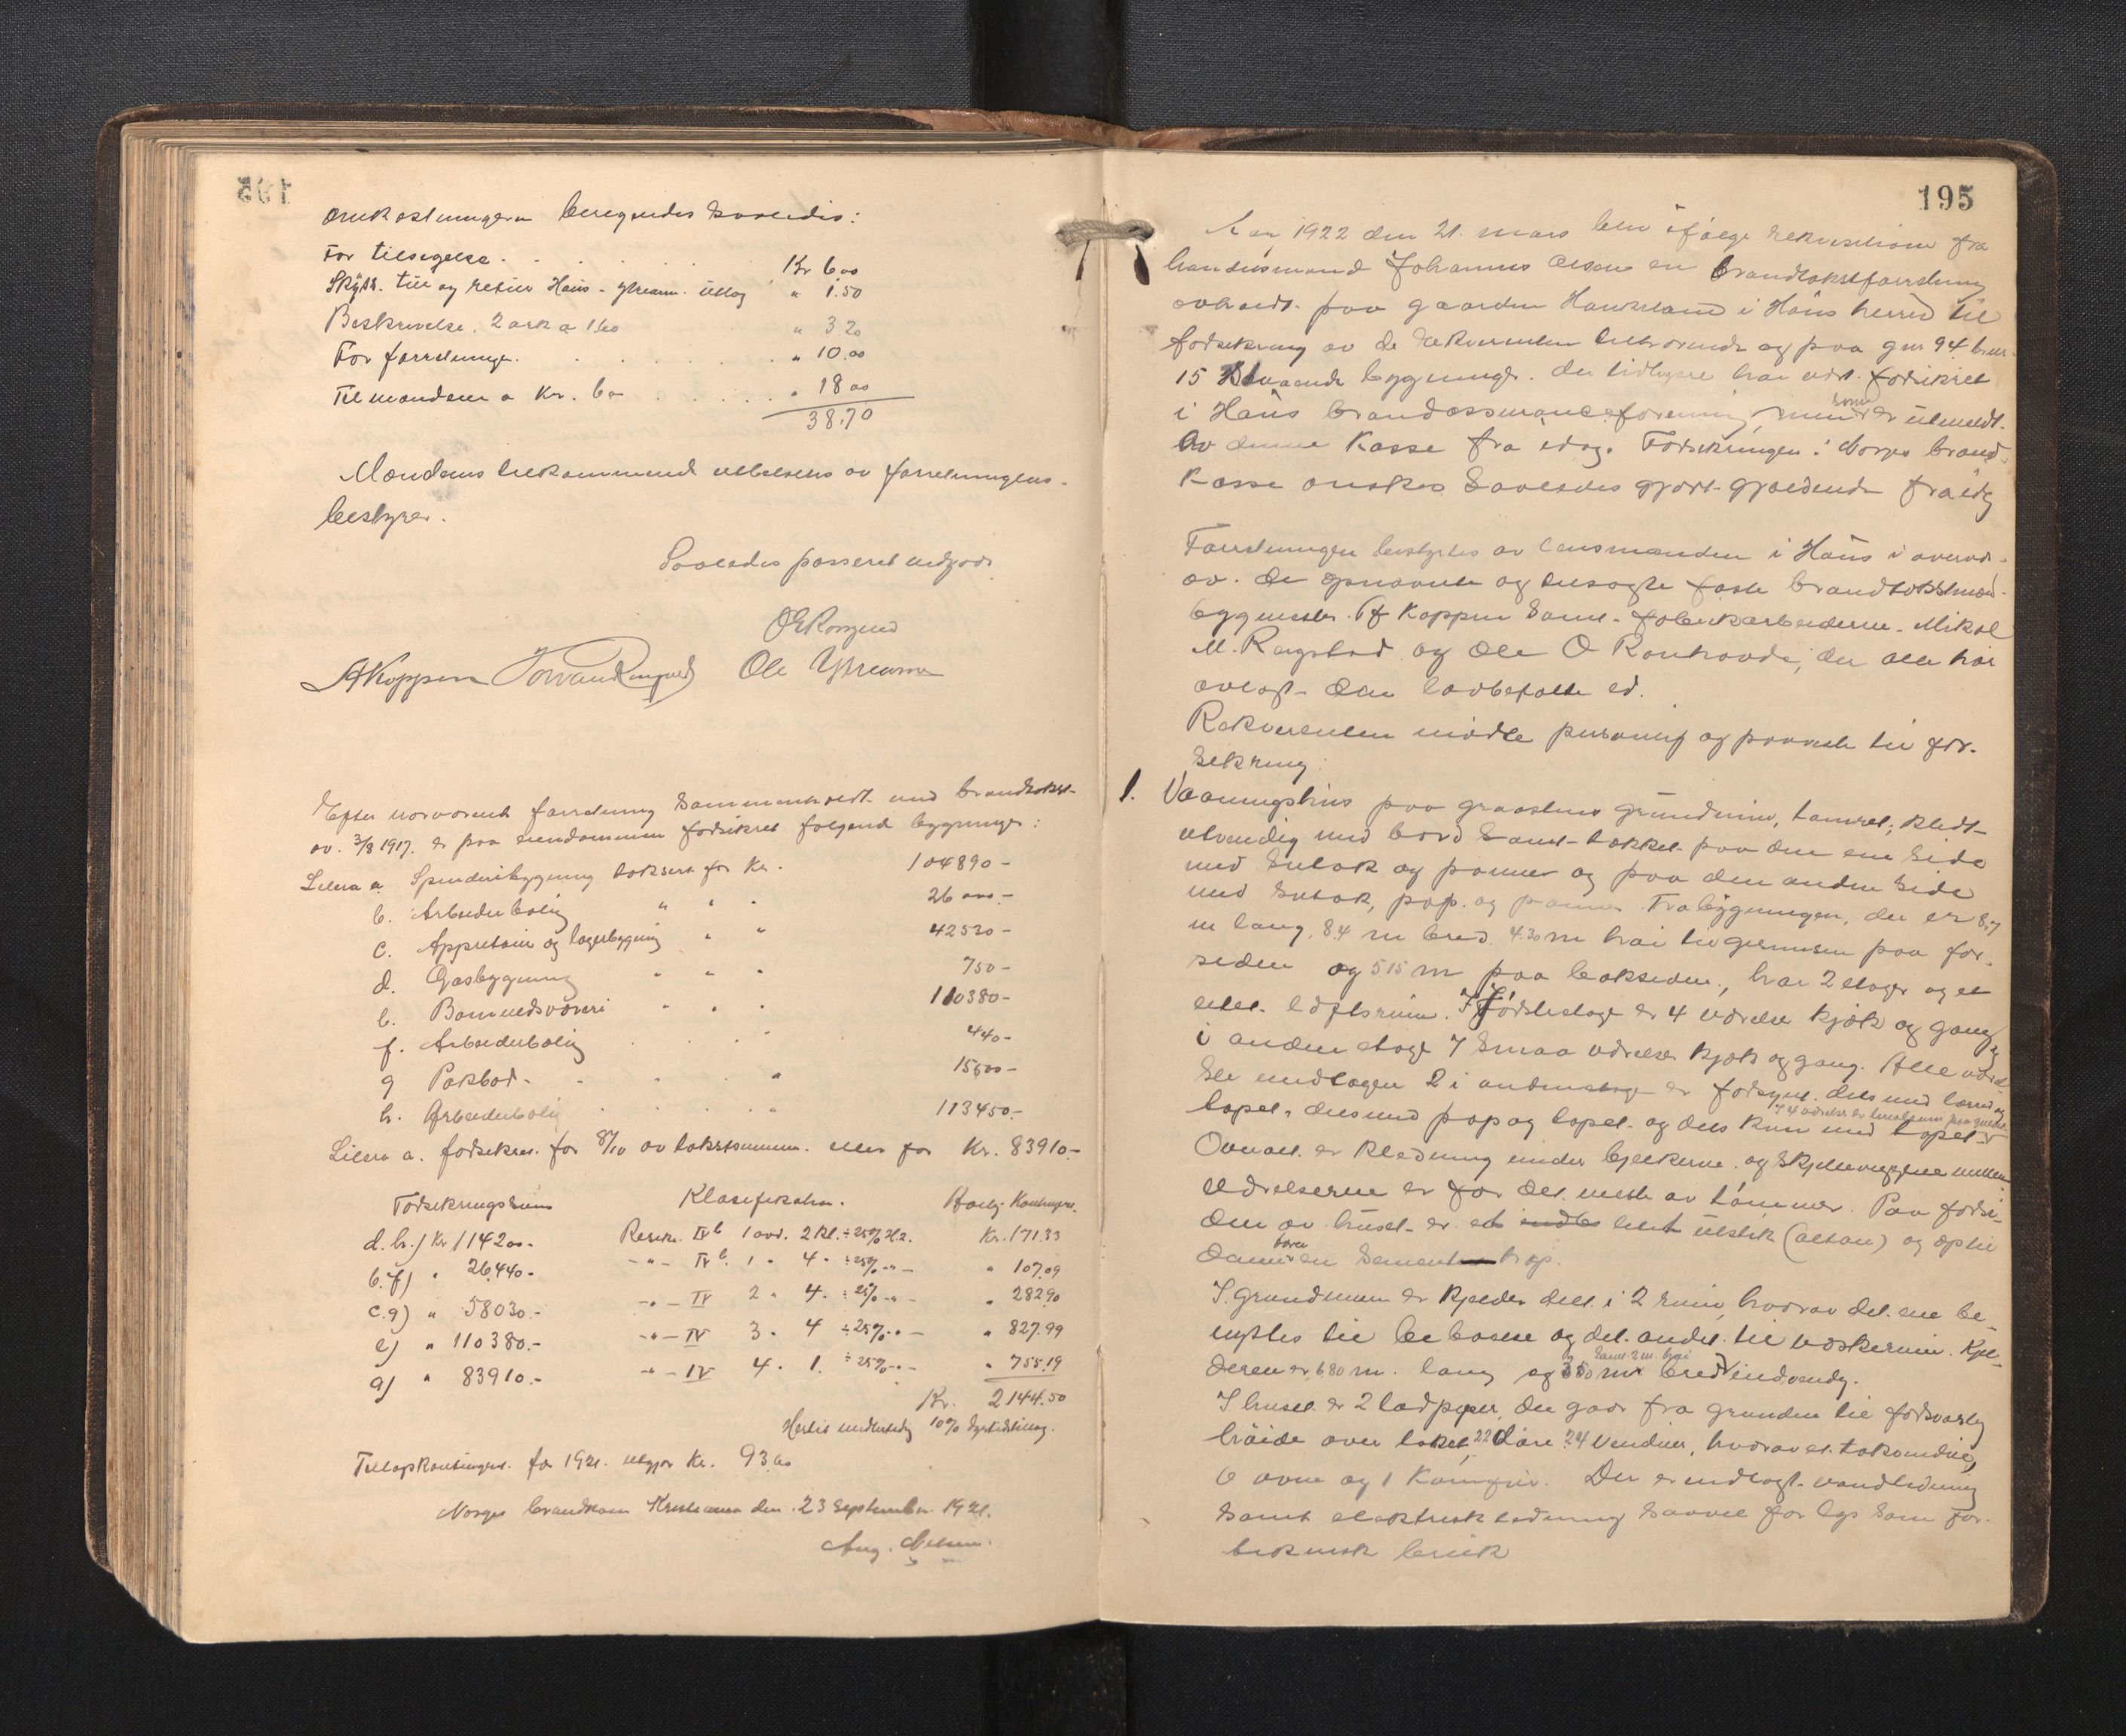 Omkostningerne beregnedes saaledes:
For tilsigelse . . . . . Kr 6.00
Skyds. til og retur Haus - Ytrearne utlæg " 1.50
Beskrivelse. 2 ark a 1.60 " 3 20
For forretningen. . . . . . " 10.00
Til mændene a Kr. 6.00 . . . . . . " 18 00
38.70
Mændenes tilkommende utbetales av forretningens-
bestyrer.
Saaledes passeret vidgaar
A Koppen Ole Ytrearne
Efter nærværende forretning sammenholdt med brandtakst-
av. 3/8 1917. er paa eiendommen forsikret følgende bygninger:
Litera a. Spinderibygning takseret for Kr. 104890 -
b. Arbeiderbolig " " " 26 000.-
c. Appretur og lagerbygning " " 42520 -
d. Gasbygning " " " 750 -
e. Bomuldsvæveri " " " 110380 -
f. Arbeiderbolig . . " 440 -
g Pakbod - . . . " 15500 -
h. Arbeiderbolig . . . . " 113450.-
Litera a. forsikres. for 8/10 av takstsummen. eller for Kr. 83910.-
Forsikringssum Klasifikation. Aarlig Kontingent.
d. h.) Kr 114200.- Reskr. IV b 1 avd. 2 Kl. ÷ 25% H.2. Kr. 171.33
b. f) " 26,440.- -"- IV b. 1 " 4 " ÷25% -"- " 107.09
c. g) " 58030.- -"- IV 2 " 4. ÷ 25% -"- " 282.90
e) " 110380.- -"- IV 3 " 4 ÷25% -"- " 827.99
a) " 83910.- -"- IV 4 " 1. ÷ 25% -"- " 755.19
Kr. 2144.50
Hertil midlertidig 10% dyrtidstillæg.
Tillægskontingent. for 1921. utgjør Kr. 93.60
Norges brandkasse Kristiania den 23 September 1921.
Aug. Nilsen.
195
Aar 1922 den 21. mars blev ifølge rekvisition fra
handelsmand Johannes Olsen en brandtakstforretning
avholdt paa gaarden Haukeland i Haus herred til
forsikring av de rekvirenten tilhørende og paa gnr 94 bnr.
15 staaende bygninger. der tidligere har vært forsikret
i Haus brandassuranceforening, men som er utmeldt.
av denne Kasse fra idag. Forsikringen i Norges brand-
kasse ønskes saaledes gjort gjældende fra idag
Forretningen bestyrtes av lensmanden i Haus i overvær-
av. de opnævnte og tilsagte faste brandtakstmænd-
bygmester A Koppen samt fabrikarbeiderne Mikal
M. Rongstad og Ole O Ronhovde, der alle har
avlagt den lovbefalte ed.
Rekvirenten mødte personlig og paaviste til for-
sikring:
1. Vaaningshus paa graastens grundmur, tømret, klædt-
utvendig med bord samt takket paa den ene side
med sutak og panner og paa den anden side
med sutak, pap. og panner. Træbygningen, der er 8.7
m lang, 8.4 m bred 4.30 m høi til gesimsen paa for-
siden og 5 15 m paa baksiden, har 2 etager og et
litet loftsrum. I første etage er 4 værelser kjøk og gang,
i anden etage 7 smaa værelser kjøk og gang. Alle værel-
ser undtagen 2 i anden etage er forsynt dels med lærred og
tapet. dels med pap og tapet og dels kun med tapet.
Overalt er klædning under bjelkerne og skjelleveggene mellem
værelserne er for det meste av tømmer. Paa forsi-
den av huset er et litet utstik (altan) og op til
denne fører en Cement trap.
I grundmuren er Kjelder delt i 2 rum, hvorav det ene be-
nyttes til beboelse og det andet til vaskerum. Kjel-
deren er 6.80 m. lang og 3 50 m bred samt 2 m. høi indvendig.
I huset er 2 lodpiper, der gaar fra grunden til forsvarlig
høide over taket, 22 døre 24 vinduer, hvorav et takvindue,
6 ovne og 1 Komfur. Der er indlagt vandledning
samt elektrisk ledning saavel for lys som for
teknisk bruk